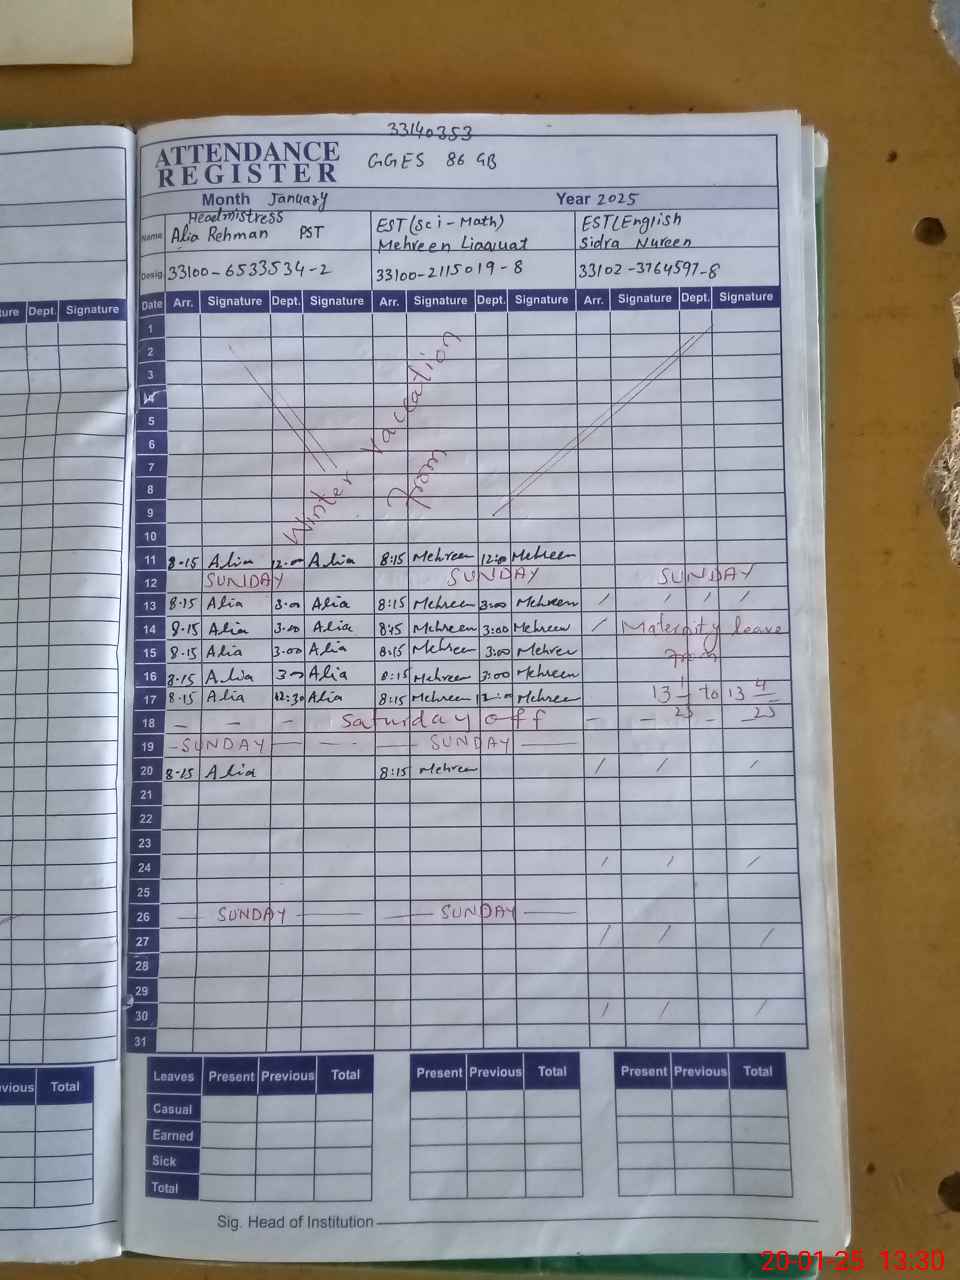 33140353
ATTENDANCE REGISTER
GGES 86 GB
Month January Year 2025
Headmistress
Name Alia Rehman PST
EST (Sci - Math)
Mehreen Liaquat
EST (English
Sidra Nureen
Desig. 33100-6533534-2 33100-2115019-8 33102-3764597-8
ture Dept. Signature
Date Arr. Signature Dept. Signature Arr. Signature Dept. Signature Arr. Signature Dept. Signature
1
2
3
4
5
6
7
8
9
10
Winter Vaccation
From
11 8-15 Alia 12.00 Alia 8:15 Mehreen 12:00 Mehreen
12 SUNDAY SUNDAY SUNDAY
13 8-15 Alia 3.00 Alia 8:15 Mehreen 3:00 Mehreen / / / /
14 8-15 Alia 3.00 Alia 8:15 Mehreen 3:00 Mehreen / Maternity leave
15 8-15 Alia 3.00 Alia 8:15 Mehreen 3:00 Mehreen From
16 8-15 Alia 3.00 Alia 8:15 Mehreen 3:00 Mehreen
17 8-15 Alia 12:30 Alia 8:15 Mehreen 12:00 Mehreen 13 1/25 to 13 4/25
18 - - - Saturday off - - - -
19 - SUNDAY - - - - SUNDAY -
20 8-15 Alia 8:15 Mehreen / / /
21
22
23
24 / / /
25
26 - SUNDAY - - SUNDAY -
27 / / /
28
29
30 / / /
31
vious Total
Leaves Present Previous Total Present Previous Total Present Previous Total
Casual
Earned
Sick
Total
Sig. Head of Institution
20-01-25 13:30